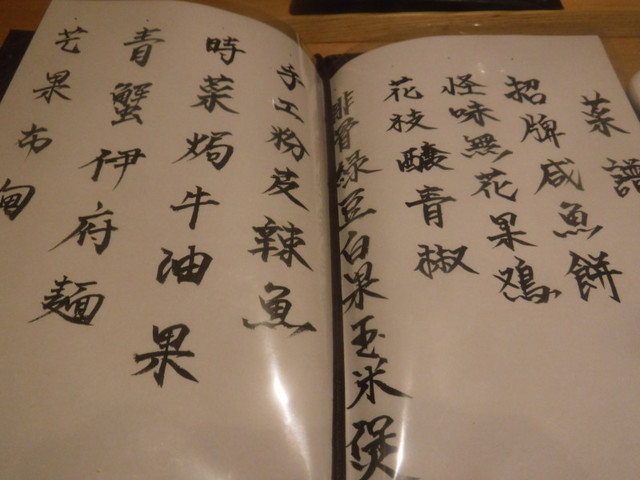 菜譜
招牌咸魚餅
怪味無花果鷄
花枝釀青椒
排骨綠豆白果玉米煲
手工粉芡辣魚
時菜焗牛油果
青蟹伊府麵
芒果布甸